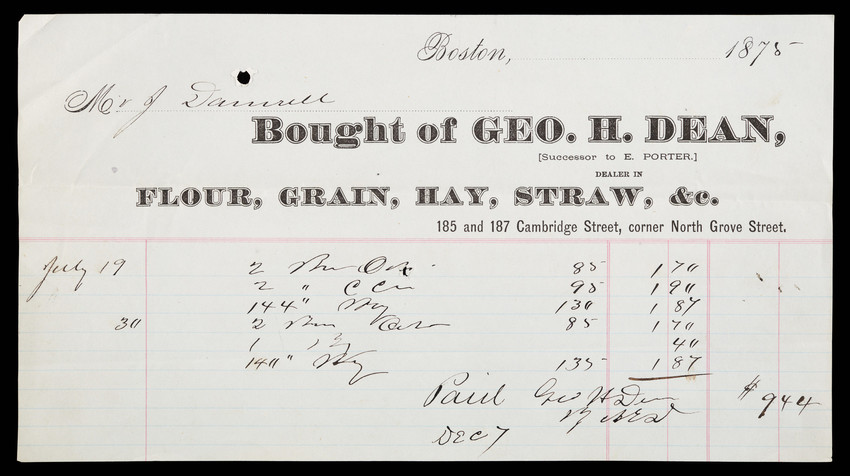 Boston, 1875
Mr J Damrell
Bought of GEO. H. DEAN,
[Successor to E. PORTER.]
DEALER IN
FLOUR, GRAIN, HAY, STRAW, &c.
185 and 187 Cambridge Street, corner North Grove Street.
July 19 2 Bu Oats 85 170
2 " C Corn 95 190
144 " Hay 130 187
30 2 Bu Oats 85 170
1 40
140 " Hay 135 187
Paid Geo H Dean $944
DEC 7